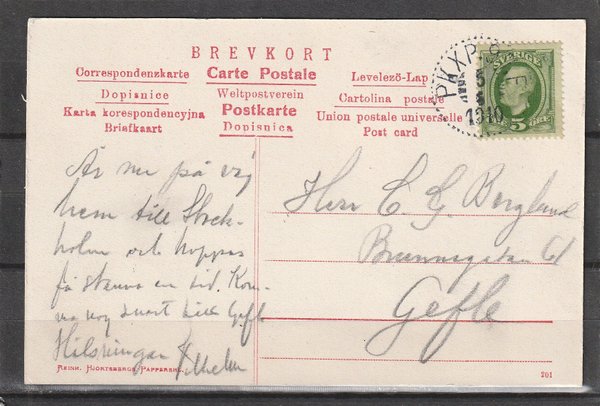 BREVKORT
Correspondenzkarte Carte Postale Levelező-Lap
Dopisnice Weltpostverein Cartolina postale
Karta korespondencyjna Postkarte Union postale universelle
Briefkaart Dopisnica Post card
SVERIGE
5 ÖRE
PKXP
1910
Är nu på väg
hem till Stock-
holm och hoppas
få stanna en tid. Kom-
ma nog snart till Gefle
Hilsningar
Vilhelm
Herr C G Berglund
Brunnsgatan 61
Gefle
REINH. HJORTSBERGS PAPPERSH.
701